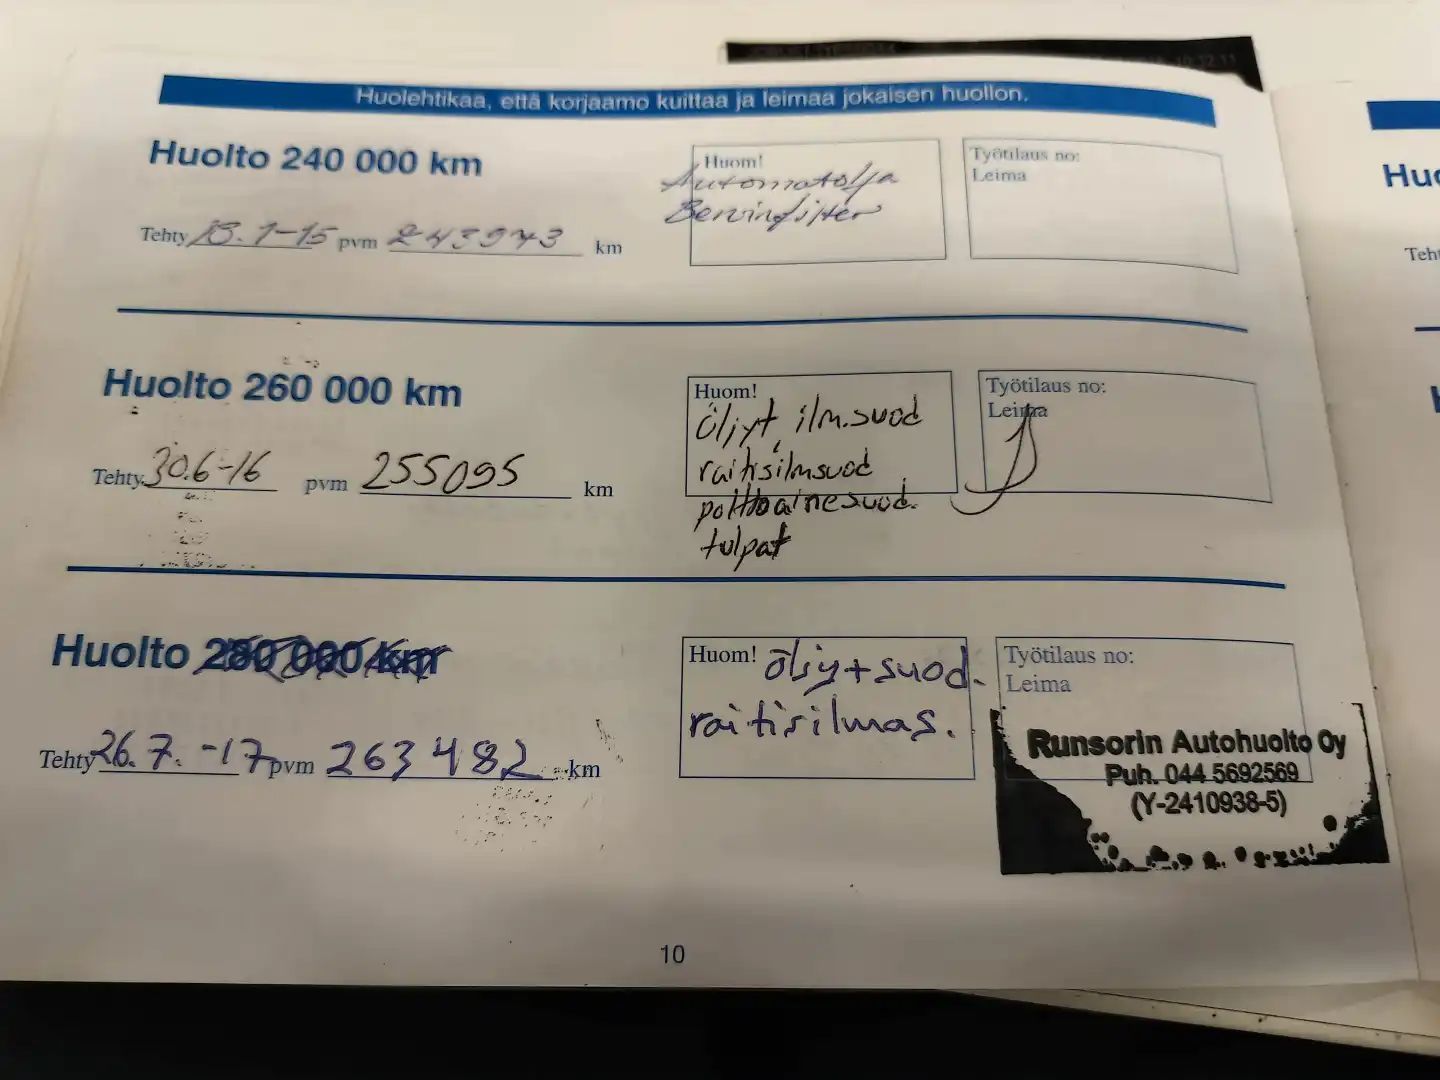 Huolehtikaa, että korjaamo kuittaa ja leimaa jokaisen huollon.
Huolto 240 000 km
Huom!
Automatolja
Bensinfilter
Työtilaus no:
Leima
Tehty 13.1-15 pvm 243943 km
Huolto 260 000 km
Huom!
Öljyt, ilm.suod
raitisilmsuod
polttoainesuod.
tulpat
Työtilaus no:
Leima
Tehty 30.6-16 pvm 255095 km
Huolto 280 000 km
Huom! öljy+suod.
raitisilmas.
Työtilaus no:
Leima
Runsorin Autohuolto Oy
Puh. 044 5692569
(Y-2410938-5)
Tehty 26.7.-17 pvm 263482 km
10